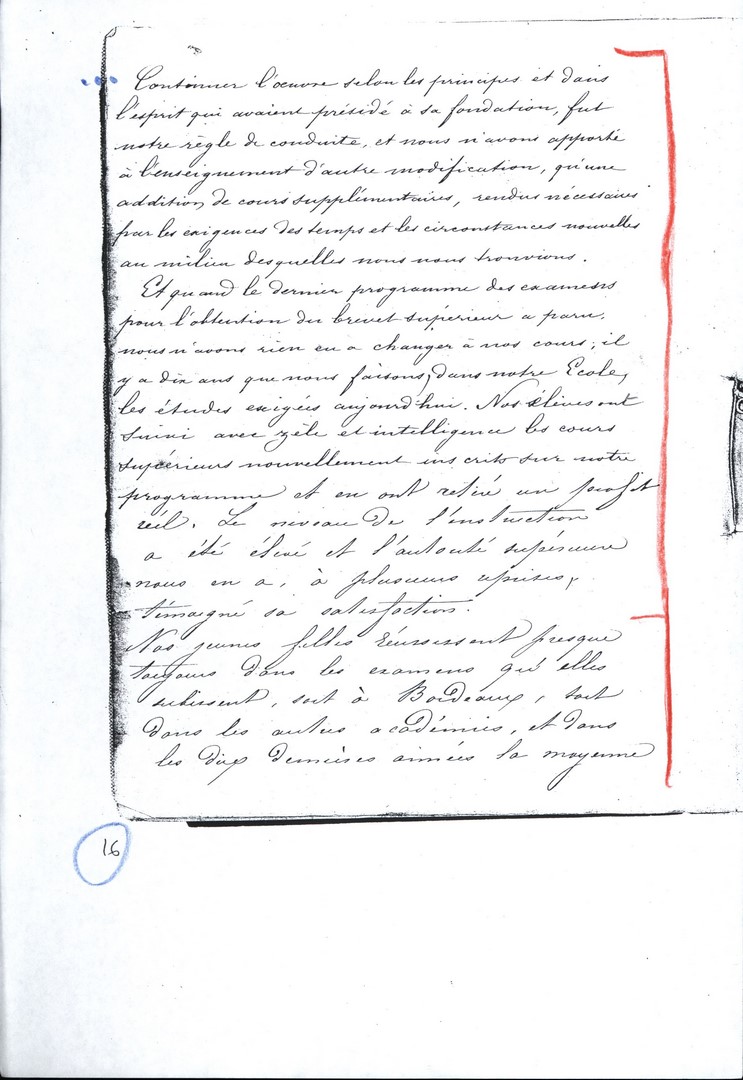 Continuer l'œuvre selon les principes et dans
l'esprit qui avaient présidé à sa fondation, fut
notre règle de conduite, et nous n'avons apporté
à l'enseignement d'autre modification, qu'une
addition de cours supplémentaires, rendus nécessaires
par les exigences des temps et les circonstances nouvelles
au milieu desquelles nous nous trouvions.
Et quand le dernier programme des examens
pour l'obtention du brevet supérieur a paru,
nous n'avons rien eu a changer à nos cours; il
y a dix ans que nous faisons, dans notre Ecole,
les études exigées aujourd'hui. Nos élèves ont
suivi avec zèle et intelligence les cours
supérieurs nouvellement inscrits sur notre
programme et en ont retiré un profit
réel. Le niveau de l'instruction
a été élevé et l'autorité supérieure
nous en a, à plusieurs reprises,
témoigné sa satisfaction.
Nos jeunes filles réussissent presque
toujours dans les examens qu'elles
subissent, soit à Bordeaux, soit
dans les autres académies, et dans
les dix dernières années la moyenne
16